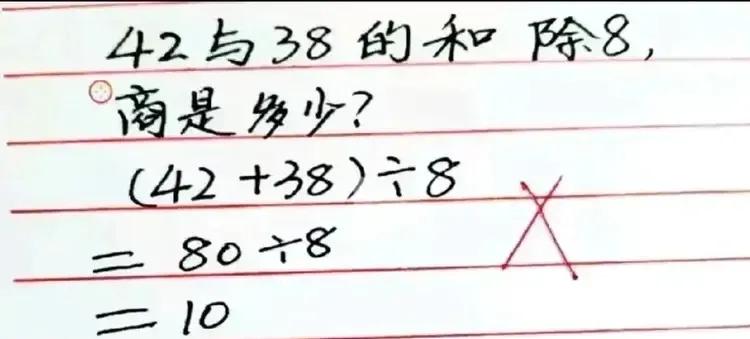 42与38的和 除8,
商是多少?
(42+38)÷8
= 80÷8
= 10